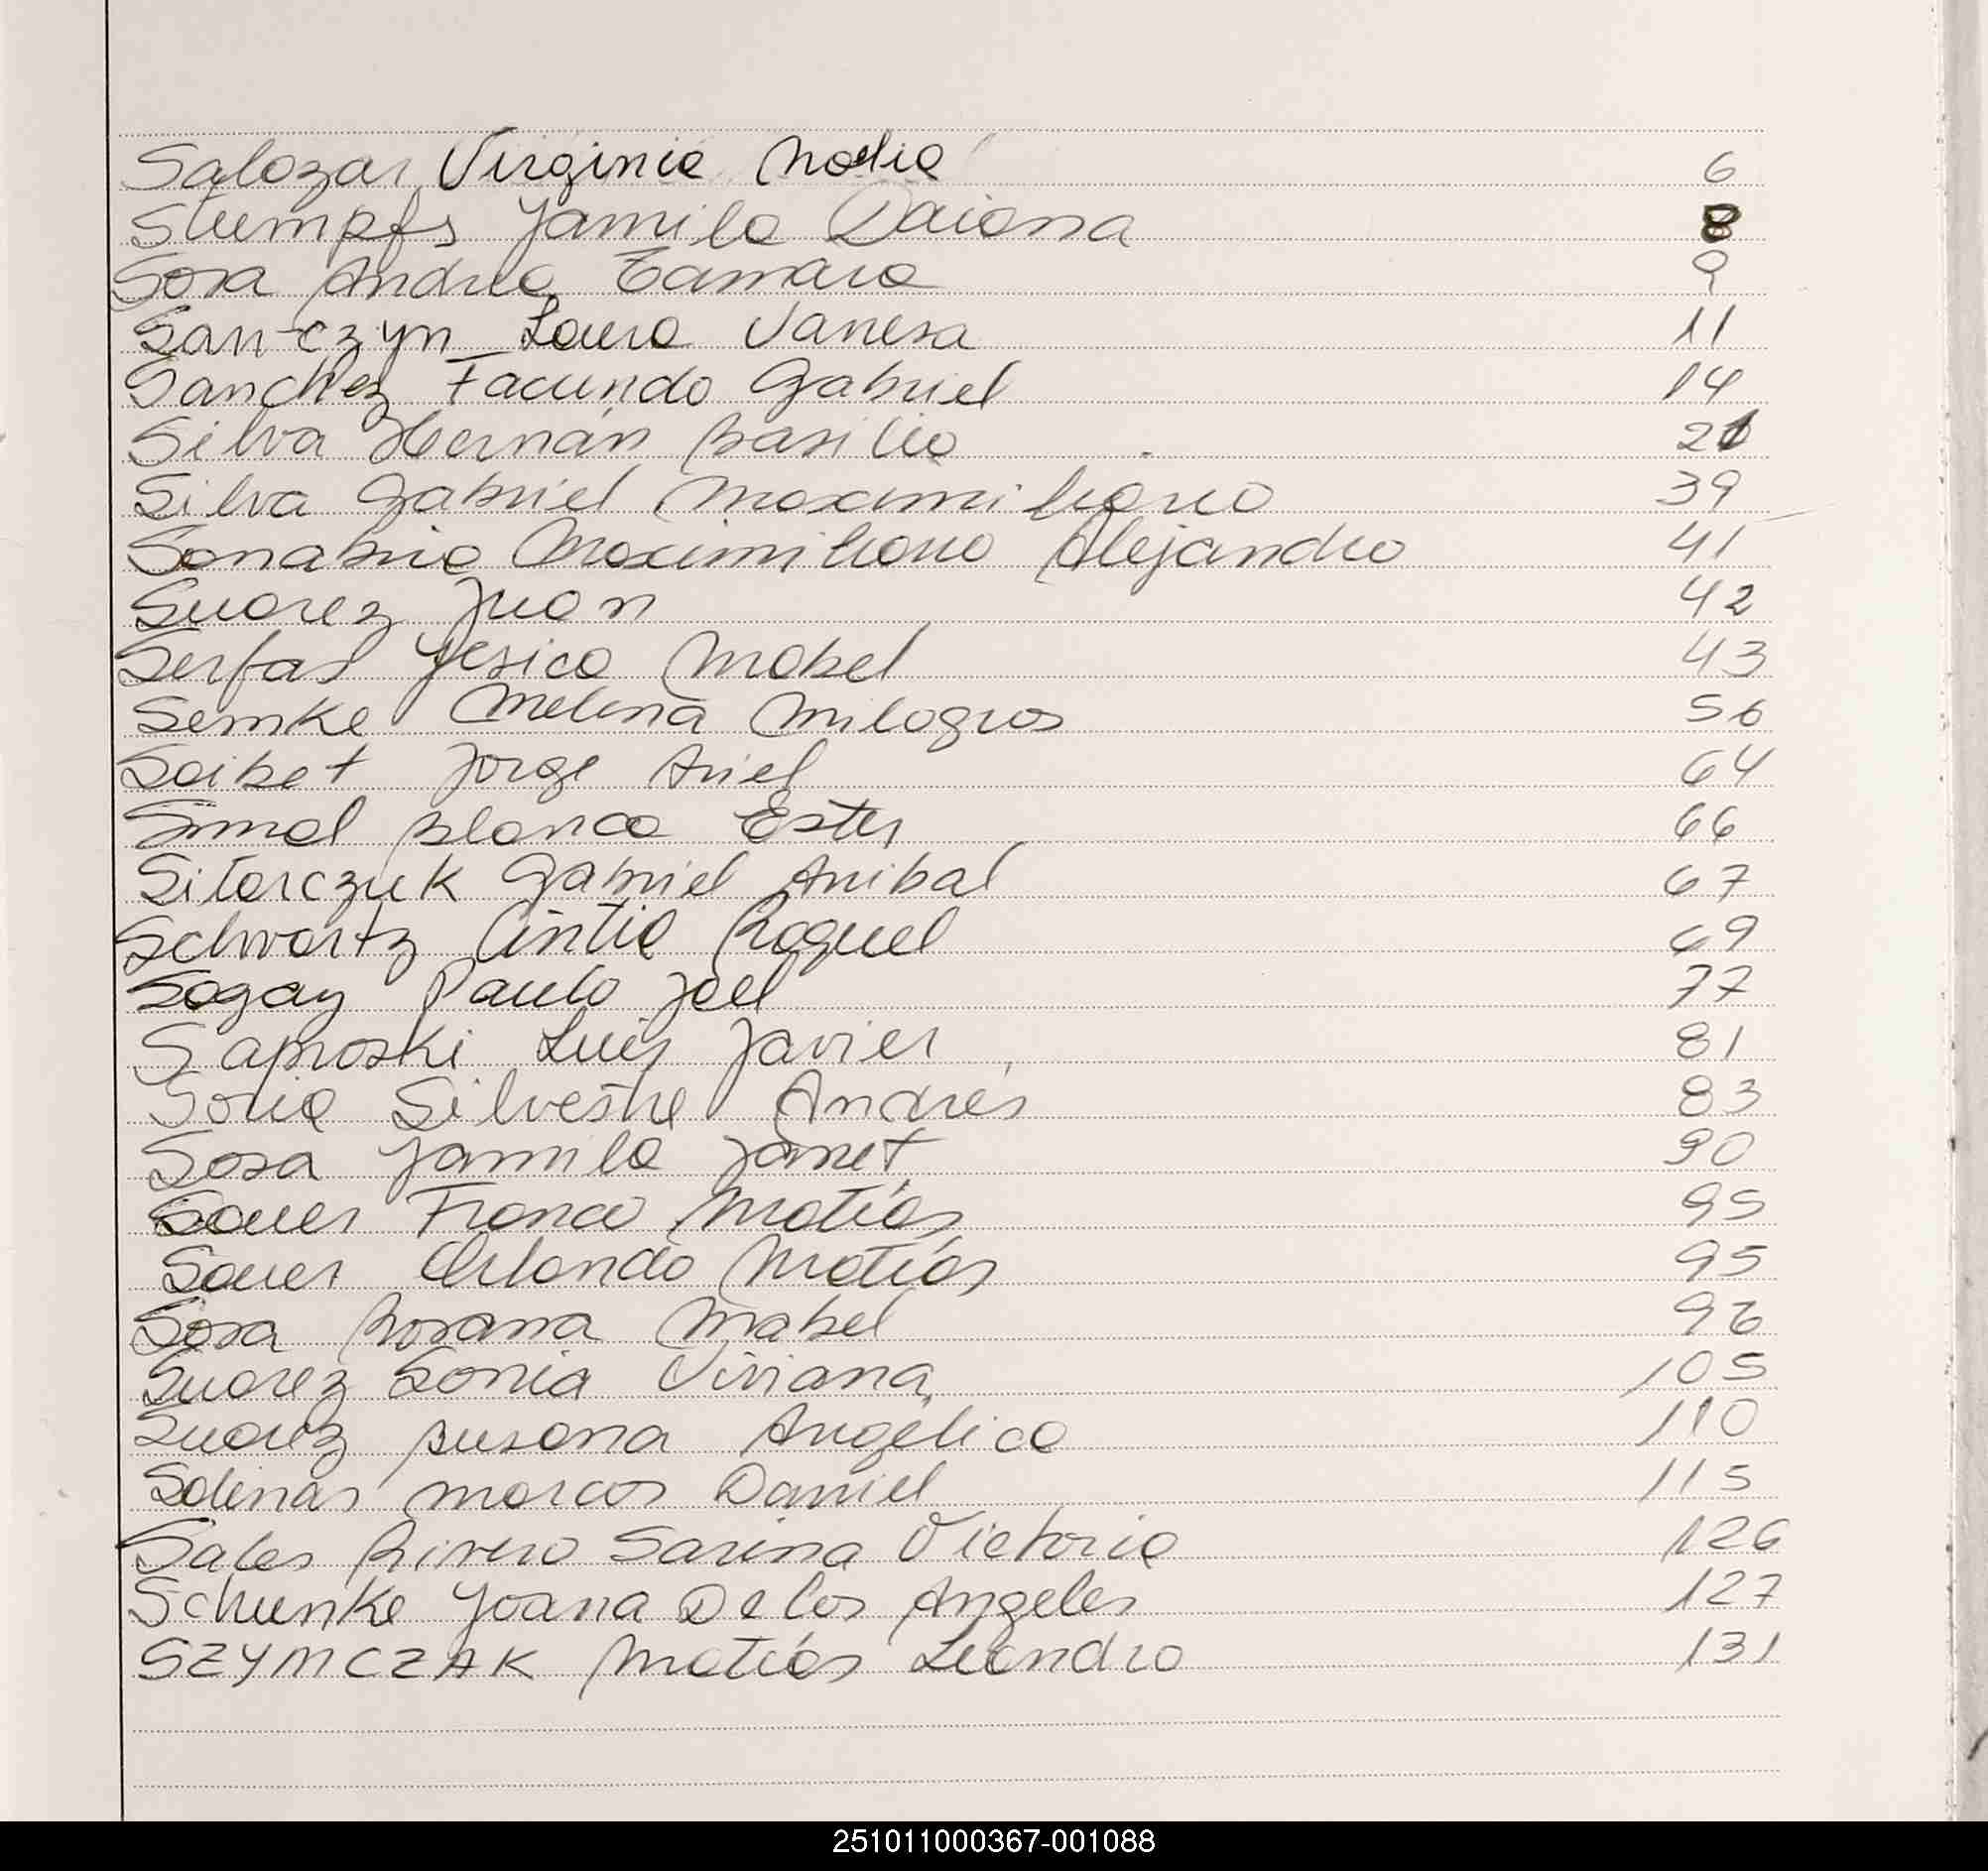 Salazar Virginia Nadia 6
Stumpfs Yamila Daiana 8
Sosa Andrea Tamara 9
San-czyn Laura Vanesa 11
Sanchez Facundo Gabriel 14
Silva Hernán Basilio 21
Silva Gabriel Maximiliano 39
Sanabria Maximiliano Alejandro 41
Suarez Juan 42
Serfas Yesica Mabel 43
Semke Melina Milagros 56
Saibet Jorge Ariel 64
Smal Blanca Ester 66
Sitarczuk Gabriel Anibal 67
Schvartz Cintia Raquel 69
Sagay Paulo Joel 77
Saproski Luis Javier 81
Soria Silvestre Andrés 83
Sosa Yamila Janet 90
Sauer Franco Matías 95
Sauer Orlando Matías 95
Sosa Rosana Mabel 96
Suarez Sonia Viviana 105
Suarez Susana Angélica 110
Salinas Marcos Daniel 115
Sales Rivero Sarina Victoria 126
Schunke Yoana De los Angeles 127
SZYMCZAK Matías Leandro 131
251011000367-001088